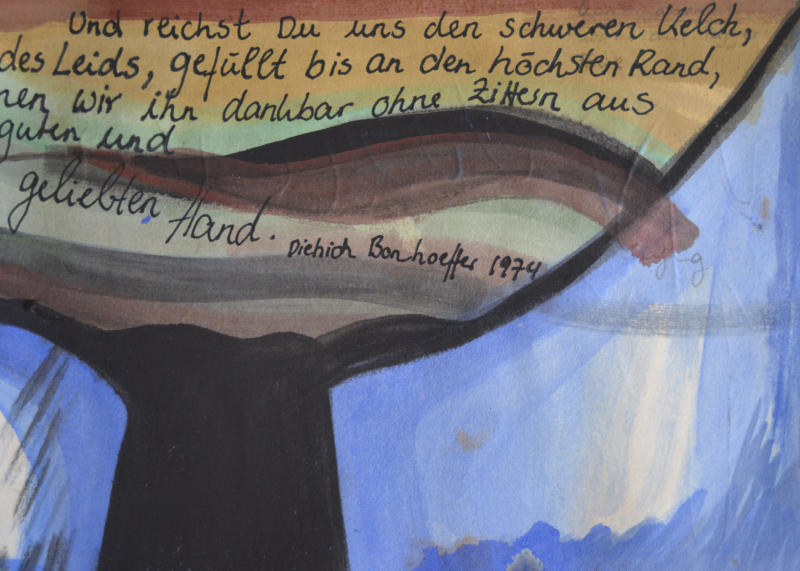 Und reichst Du uns den schweren Kelch,
des Leids, gefüllt bis an den höchsten Rand,
nen wir ihn dankbar ohne Zittern aus
guten und
geliebten Hand.
Dietrich Bonhoeffer 1974